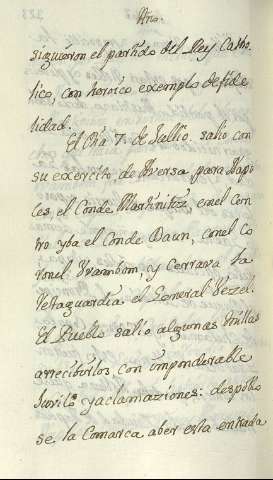 Año.
siguieron el partido del Rey Catho-
lico, con heroico exemplo de fide
lidad.
El Dia 7 de Jullio, salio con
su exercito de Aversa para Napo
les, el Conde Martinitz, en el Cen
tro yba el Conde Daun, con el Co
ronel y Cerrava la
Retaguardia el General Vezel.
El Pueblo salio algunas millas
arrecibirlos con imponderable
Jubilo yaclamaziones: despobló
se la Comarca, aber esta entrada